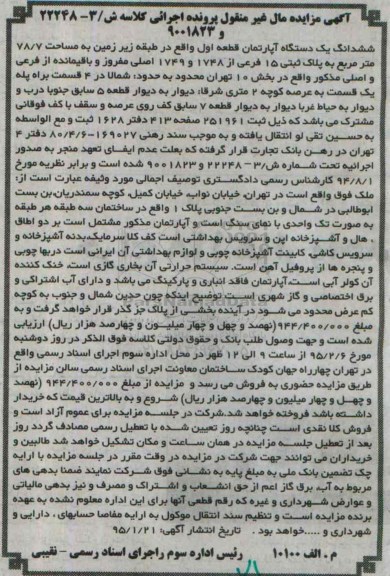 آگهی مزایده مال غیر منقول پرونده اجرائی کلاسه ش/۳- ۲۲۲۴۸
و ۹۰۰۱۸۲۳
ششدانگ یک دستگاه آپارتمان قطعه اول واقع در طبقه زیر زمین به مساحت ۷۸/۷
متر مربع به پلاک ثبتی ۱۵ فرعی از ۱۷۴۸ و ۱۷۴۹ اصلی مفروز و باقیمانده از فرعی
و اصلی مذکور واقع در بخش ۱۰ تهران محدود به حدود: شمالا در ۴ قسمت براه پله
یک قسمت به عرصه کوچه ۲ متری شرقا: دیوار به دیوار قطعه ۵ سابق جنوبا درب و
دیوار به حیاط غربا دیوار به دیوار قطعه ۷ سابق کف روی عرصه و سقف با کف فوقانی
مشترک می باشد که ذیل ثبت ۲۵۱۹۶۱ صفحه ۴۱۳ دفتر ۱۶۲۸ ثبت و مع الواسطه
به حسین تقی لو انتقال یافته و به موجب سند رهنی ۱۶۹۰۲۷-۸۰/۴/۶ دفتر ۴
تهران در رهن بانک تجارت قرار گرفته که بعلت عدم ایفای تعهد منجر به صدور
اجرائیه تحت شماره ش/۳- ۲۲۲۴۸ و ۹۰۰۱۸۲۳ شده است و برابر نظریه مورخ
۹۴/۸/۱ کارشناس رسمی دادگستری توصیف اجمالی مورد وثیقه عبارت است از:
ملک فوق واقع است در تهران، خیابان نواب، خیابان کمیل، کوچه سمندریان،بن بست
ابوطالبی در شمال و بن بست جنوبی پلاک ۱ واقع در ساختمان سه طبقه هر طبقه
به صورت تک واحدی با نمای سنگ است و آپارتمان مذکور مشتمل است بر دو اطاق
، هال و آشپزخانه اپن و سرویس بهداشتی است کف کلا سرامیک،بدنه آشپزخانه و
سرویس کاشی، کابینت آشپزخانه چوبی و لوازم بهداشتی آن ایرانی است دربها چوبی
و پنجره ها از پروفیل آهن است. سیستم حرارتی آن بخاری گازی است، خنک کننده
آن کولر آبی است.آپارتمان فاقد انباری و پارکینگ می باشد و دارای آب اشتراکی و
برق اختصاصی و گاز شهری است توضیح اینکه چون حدین شمال و جنوب به کوچه
کم عرض محدود می شود در آینده بخشی از پلاک جز گذر قرار خواهد گرفت و به
مبلغ ۹۴۴/۴۰۰/۰۰۰(نهصد و چهل و چهار میلیون و چهارصد هزار ریال) ارزیابی
شده است و جهت وصول طلب بانک و حقوق دولتی کلاسه فوق الذکر در روز دوشنبه
مورخ ۹۵/۲/۶ از ساعت ۹ الی ۱۲ ظهر در محل اداره سوم اجرای اسناد رسمی واقع
در تهران چهارراه جهان کودک ساختمان معاونت اجرای اسناد رسمی سالن مزایده از
طریق مزایده حضوری به فروش می رسد و مزایده از مبلغ ۹۴۴/۴۰۰/۰۰۰ (نهصد
و چهل و چهار میلیون و چهارصد هزار ریال) شروع و به بالاترین قیمت که خریدار
داشته باشد فروخته خواهد شد.شرکت در جلسه مزایده برای عموم آزاد است و
فروش کلا نقدی است چنانچه روز تعیین شده با تعطیل رسمی مصادف گردد روز
بعد از تعطیل جلسه مزایده در همان ساعت و مکان تشکیل خواهد شد طالبین و
خریداران می توانند جهت شرکت در مزایده در وقت مقرر در جلسه مزایده با ارایه
چک تضمین بانک ملی به مبلغ پایه به نشانی فوق شرکت نمایند ضمنا بدهی های
مربوط به آب، برق گاز اعم از حق انشعاب و اشتراک و مصرف و نیز بدهی مالیاتی
و عوارض شهرداری و غیره که رقم قطعی آنها برای این اداره معلوم نشده به عهده
برنده مزایده است و تنظیم سند انتقال موکول به ارایه مفاصا حسابهای ، دارایی و
شهرداری و ....خواهد بود. تاریخ انتشار آگهی: ۹۵/۱/۲۱
م . الف ۱۰۱۰۰ رئیس اداره سوم راجرای اسناد رسمی – نقیبی